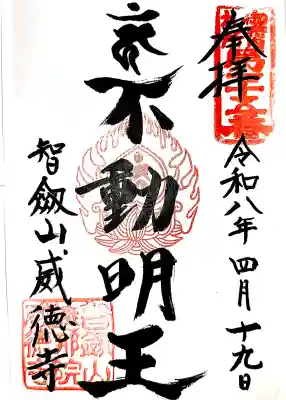 奉拝
令和八年四月十九日
不動明王
智劔山威徳寺